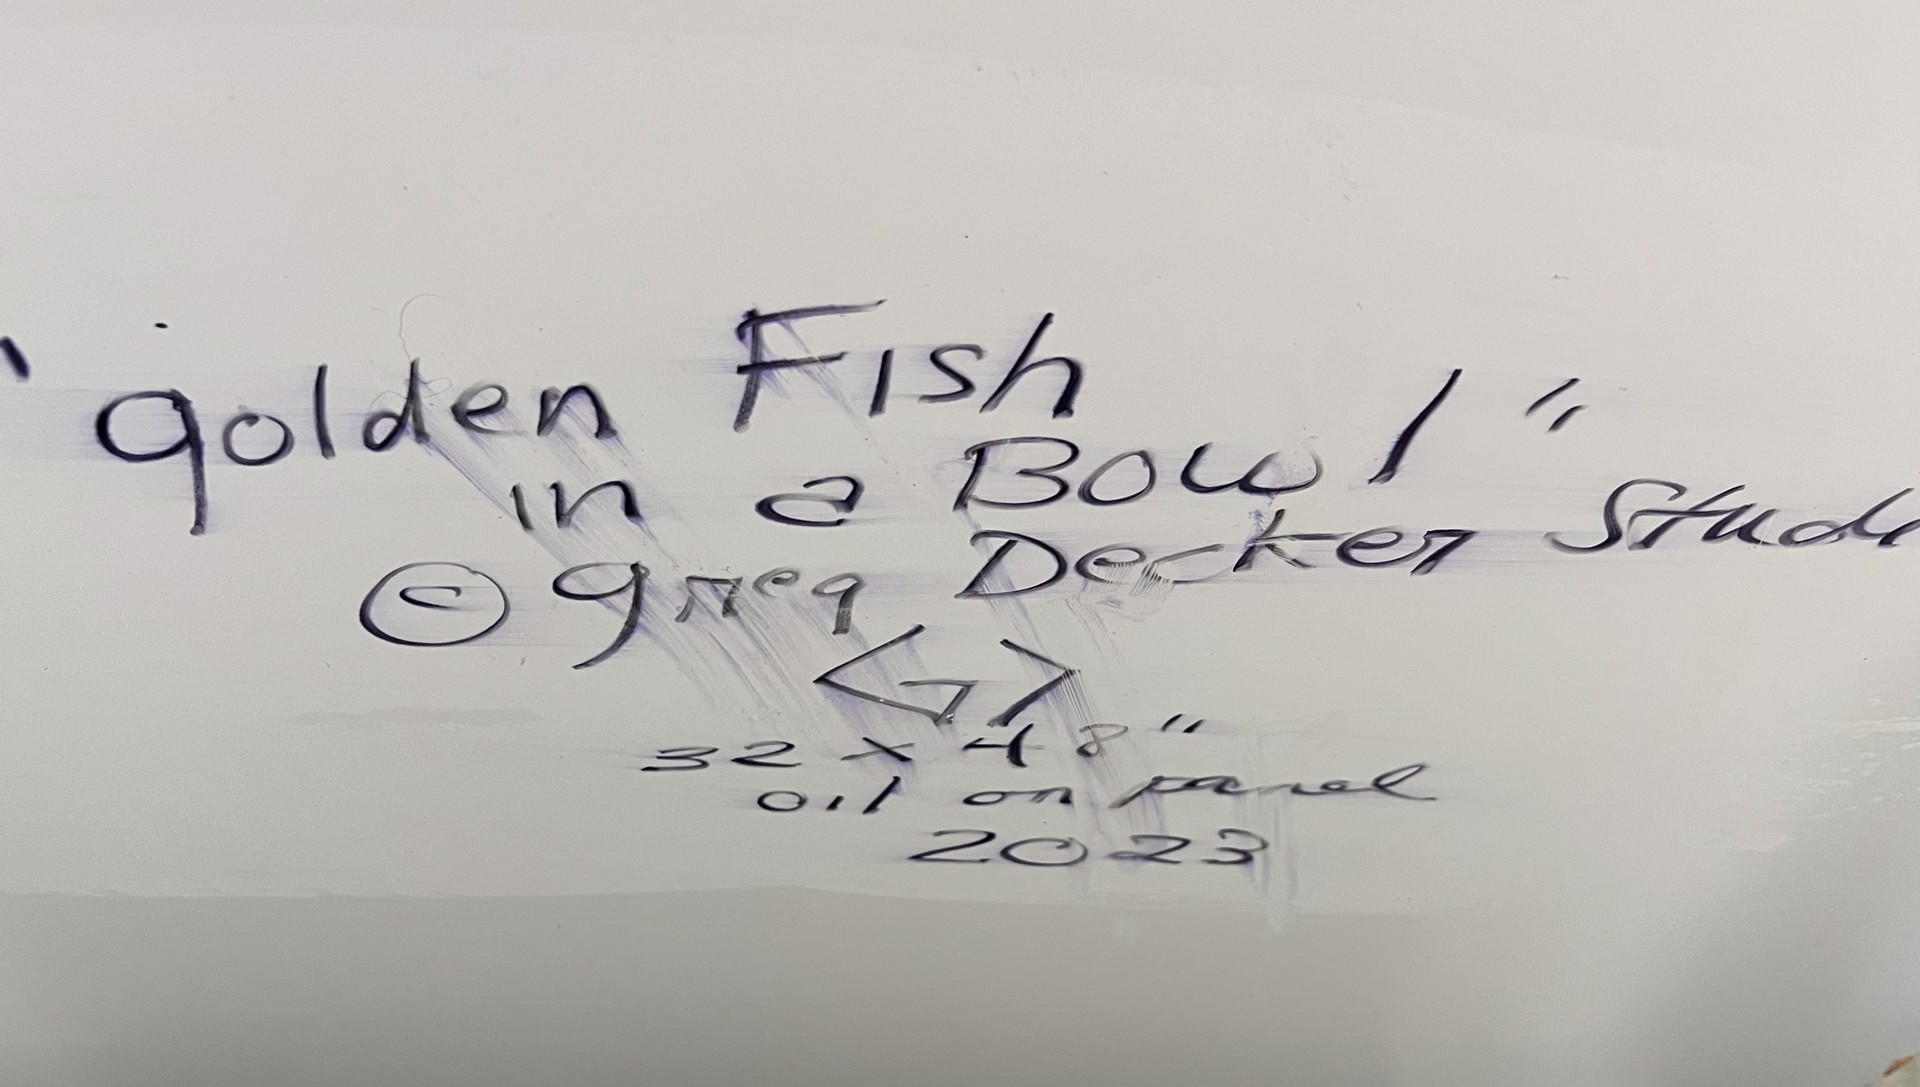 "golden Fish
in a Bowl"
© greg Decker Stud
<G>
32 x 48"
oil on panel
2023